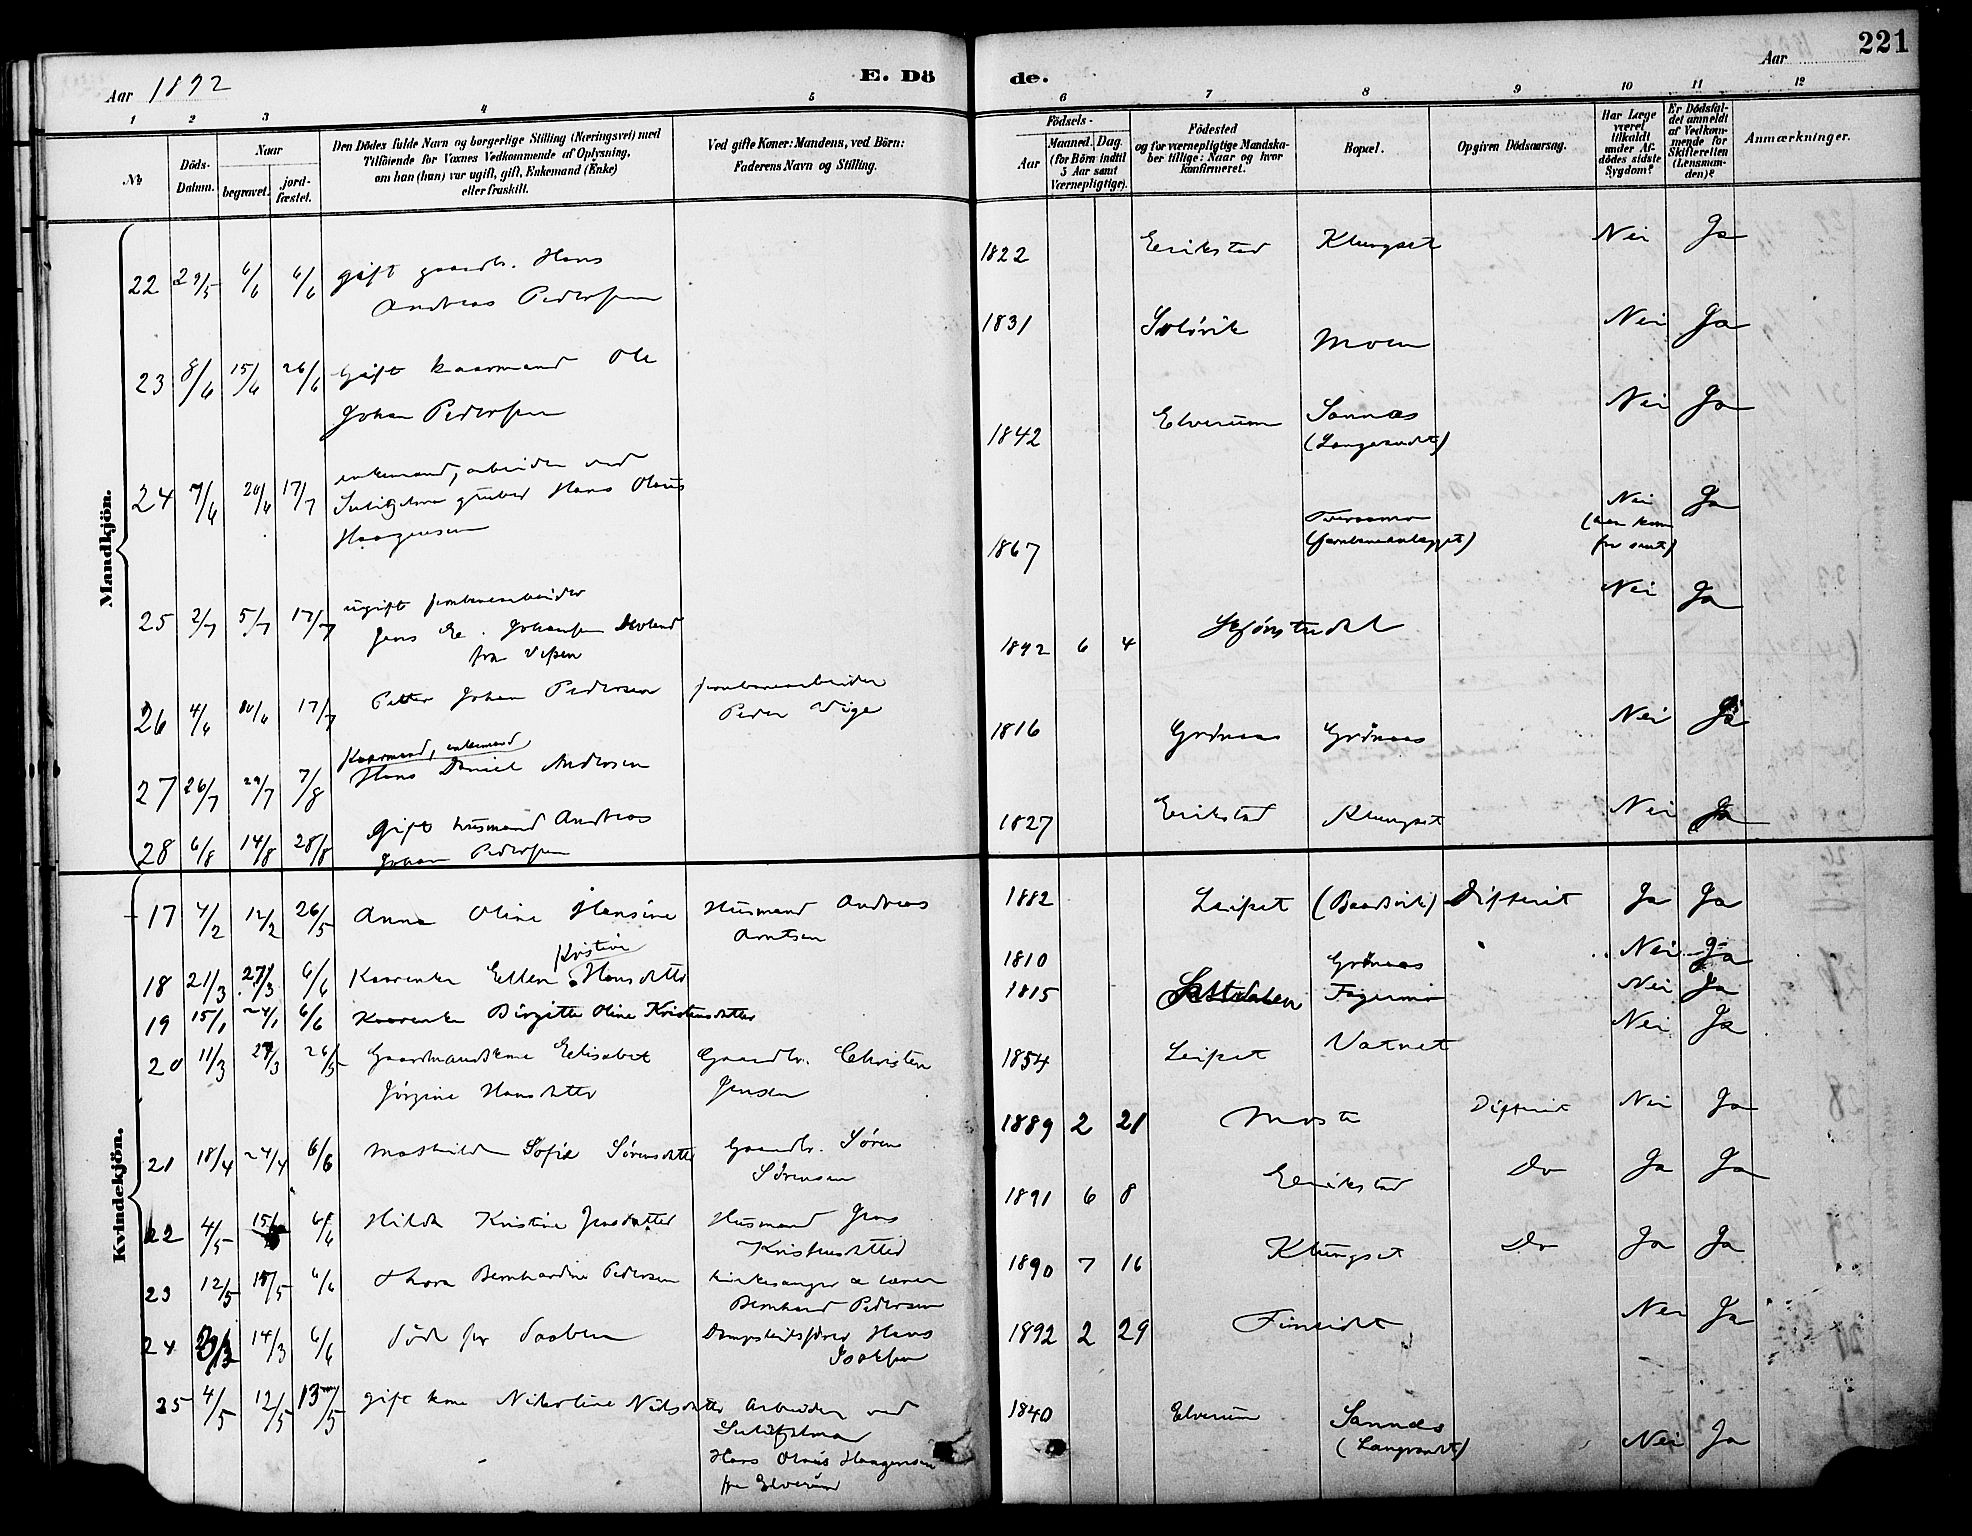 221
Aar 1892
E. Dö de.
Aar
1 2 3 4 5 6 7 8 9 10 11 12
№
Döds-Datum.
Naar
begravet.
jord-fæstet.
Den Dödes fulde Navn og borgerlige Stilling (Næringsvei) med
Tilföiende for Voxnes Vedkommende af Oplysning,
om han (hun) var ugift, gift, Enkemand (Enke)
eller fraskilt.
Ved gifte Koner: Mandens, ved Börn:
Faderens Navn og Stilling.
Födsels-
Aar
Maaned. Dag.
(for Börn indtil
5 Aar samt
Værnepligtige).
Födested
og for værnepligtige Mandska-
ber tillige: Naar og hvor
konfirmeret.
Bopæl.
Opgiven Dödsaarsag.
Har Læge
været
tilkaldt
under Af-
dödes sidste
Sygdom?
Er Dödsfal-
det anmeldt
af Vedkom-
mende for
Skifteretten
(Lensman-
den)?
Anmærkninger.
Mandkjön.
22 29/5 6/6 6/6 gift gaardbr. Hans 1822 Erikstad Klungset Nei Ja
Andreas Pedersen
23 8/6 15/6 26/6 Gift kaarmand Ole 1831 Moen Nei Ja
Johan Pedersen
24 7/6 20/6 17/7 enkemand, arbeider ved 1842 Elverum Sannæs Nei Ja
gruber Hans Olaus
Haagensen
25 2/7 5/7 17/7 ugift jernbanearbeider 1867 Nei Ja
Jens Johansen
fra Vefsen
26 4/6 17/7 Petter Johan Pedersen jernbanearbeider 1892 6 4 Nei Ja
Peder
27 26/7 29/7 7/8 Kaarmand, enkemand 1816 Grönaas Grönaas Nei Ja
Hans Daniel Andersen
28 6/8 14/8 28/8 Gift husmand Andreas 1827 Erikstad Klungset Nei Ja
Johan Pedersen
Kvindekjön.
17 4/2 12/2 26/5 Anna Oline Hansine Husmand Andreas 1882 Leifset Difterit Ja Ja
Arntsen
18 21/3 27/3 6/6 Kaarenke Ellen Kristine Hansdatter 1810 Grönaas Nei Ja
19 15/1 24/1 6/6 Kaarenke Birgitte Oline Kristensdatter 1815 Saltdalen Fagermo Nei Ja
20 11/3 27/3 26/5 Gaardmandskone Elisabet Gaardbr. Christen 1854 Leifset Vatnet Nei Ja
Jörgine Hansdatter Jensen
21 18/4 24/4 6/6 Mathilde Sofie Sörensdatter Gaardbr. Sören 1889 2 21 Difterit Nei Ja
Sörensen
22 4/5 6/6 Hilda Kristine Jensdatter Husmand Jens 1891 6 8 Erikstad Do Ja Ja
23 12/5 6/6 Thora Bernhardine Pedersen kirkesanger 1890 7 16 Klungset Do Ja Ja
Bernhard Pedersen
24 14/3 6/6 död för daaben Dampskibsförer Hans 1892 2 29 Finneidet Nei Ja
Isaksen
25 4/5 12/5 gift kone Nikoline Nilsdatter Arbeider ved 1840 Elverum Sannæs Nei Ja
Sulitjelma
Hans Olaus Haagensen
fra Elverum